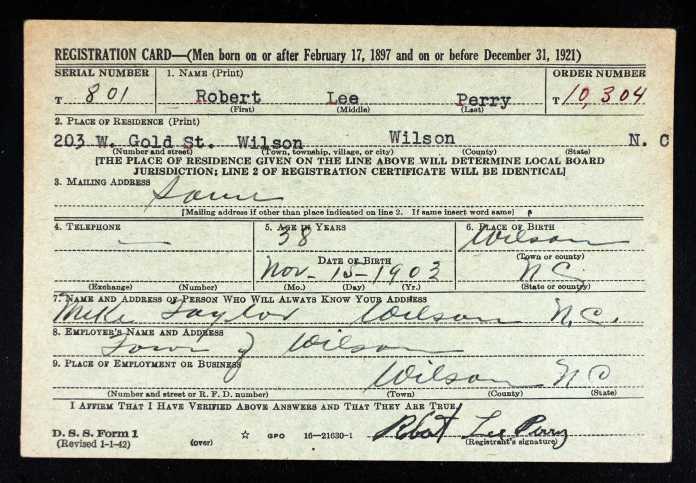 REGISTRATION CARD—(Men born on or after February 17, 1897 and on or before December 31, 1921)
SERIAL NUMBER 1. NAME (Print) ORDER NUMBER
T 801 Robert Lee Perry T 10,304
(First) (Middle) (Last)
2. PLACE OF RESIDENCE (Print)
203 W. Gold St. Wilson Wilson N. C
(Number and street) (Town, township, village, or city) (County) (State)
[THE PLACE OF RESIDENCE GIVEN ON THE LINE ABOVE WILL DETERMINE LOCAL BOARD
JURISDICTION; LINE 2 OF REGISTRATION CERTIFICATE WILL BE IDENTICAL]
3. MAILING ADDRESS
Same
[Mailing address if other than place indicated on line 2. If same insert word same]
4. TELEPHONE 5. AGE IN YEARS 6. PLACE OF BIRTH
— 38 Wilson
DATE OF BIRTH (Town or county)
Nov- 15-1903 N.C.
(Exchange) (Number) (Mo.) (Day) (Yr.) (State or country)
7. NAME AND ADDRESS OF PERSON WHO WILL ALWAYS KNOW YOUR ADDRESS
Mike Taylor Wilson N.C.
8. EMPLOYER'S NAME AND ADDRESS
Town of Wilson
9. PLACE OF EMPLOYMENT OR BUSINESS
Wilson N C
(Number and street or R. F. D. number) (Town) (County) (State)
I AFFIRM THAT I HAVE VERIFIED ABOVE ANSWERS AND THAT THEY ARE TRUE.
Robert Lee Perry
D. S. S. Form 1 (Registrant's signature)
(Revised 1-1-42) (over) ☆ GPO 16—21630-1